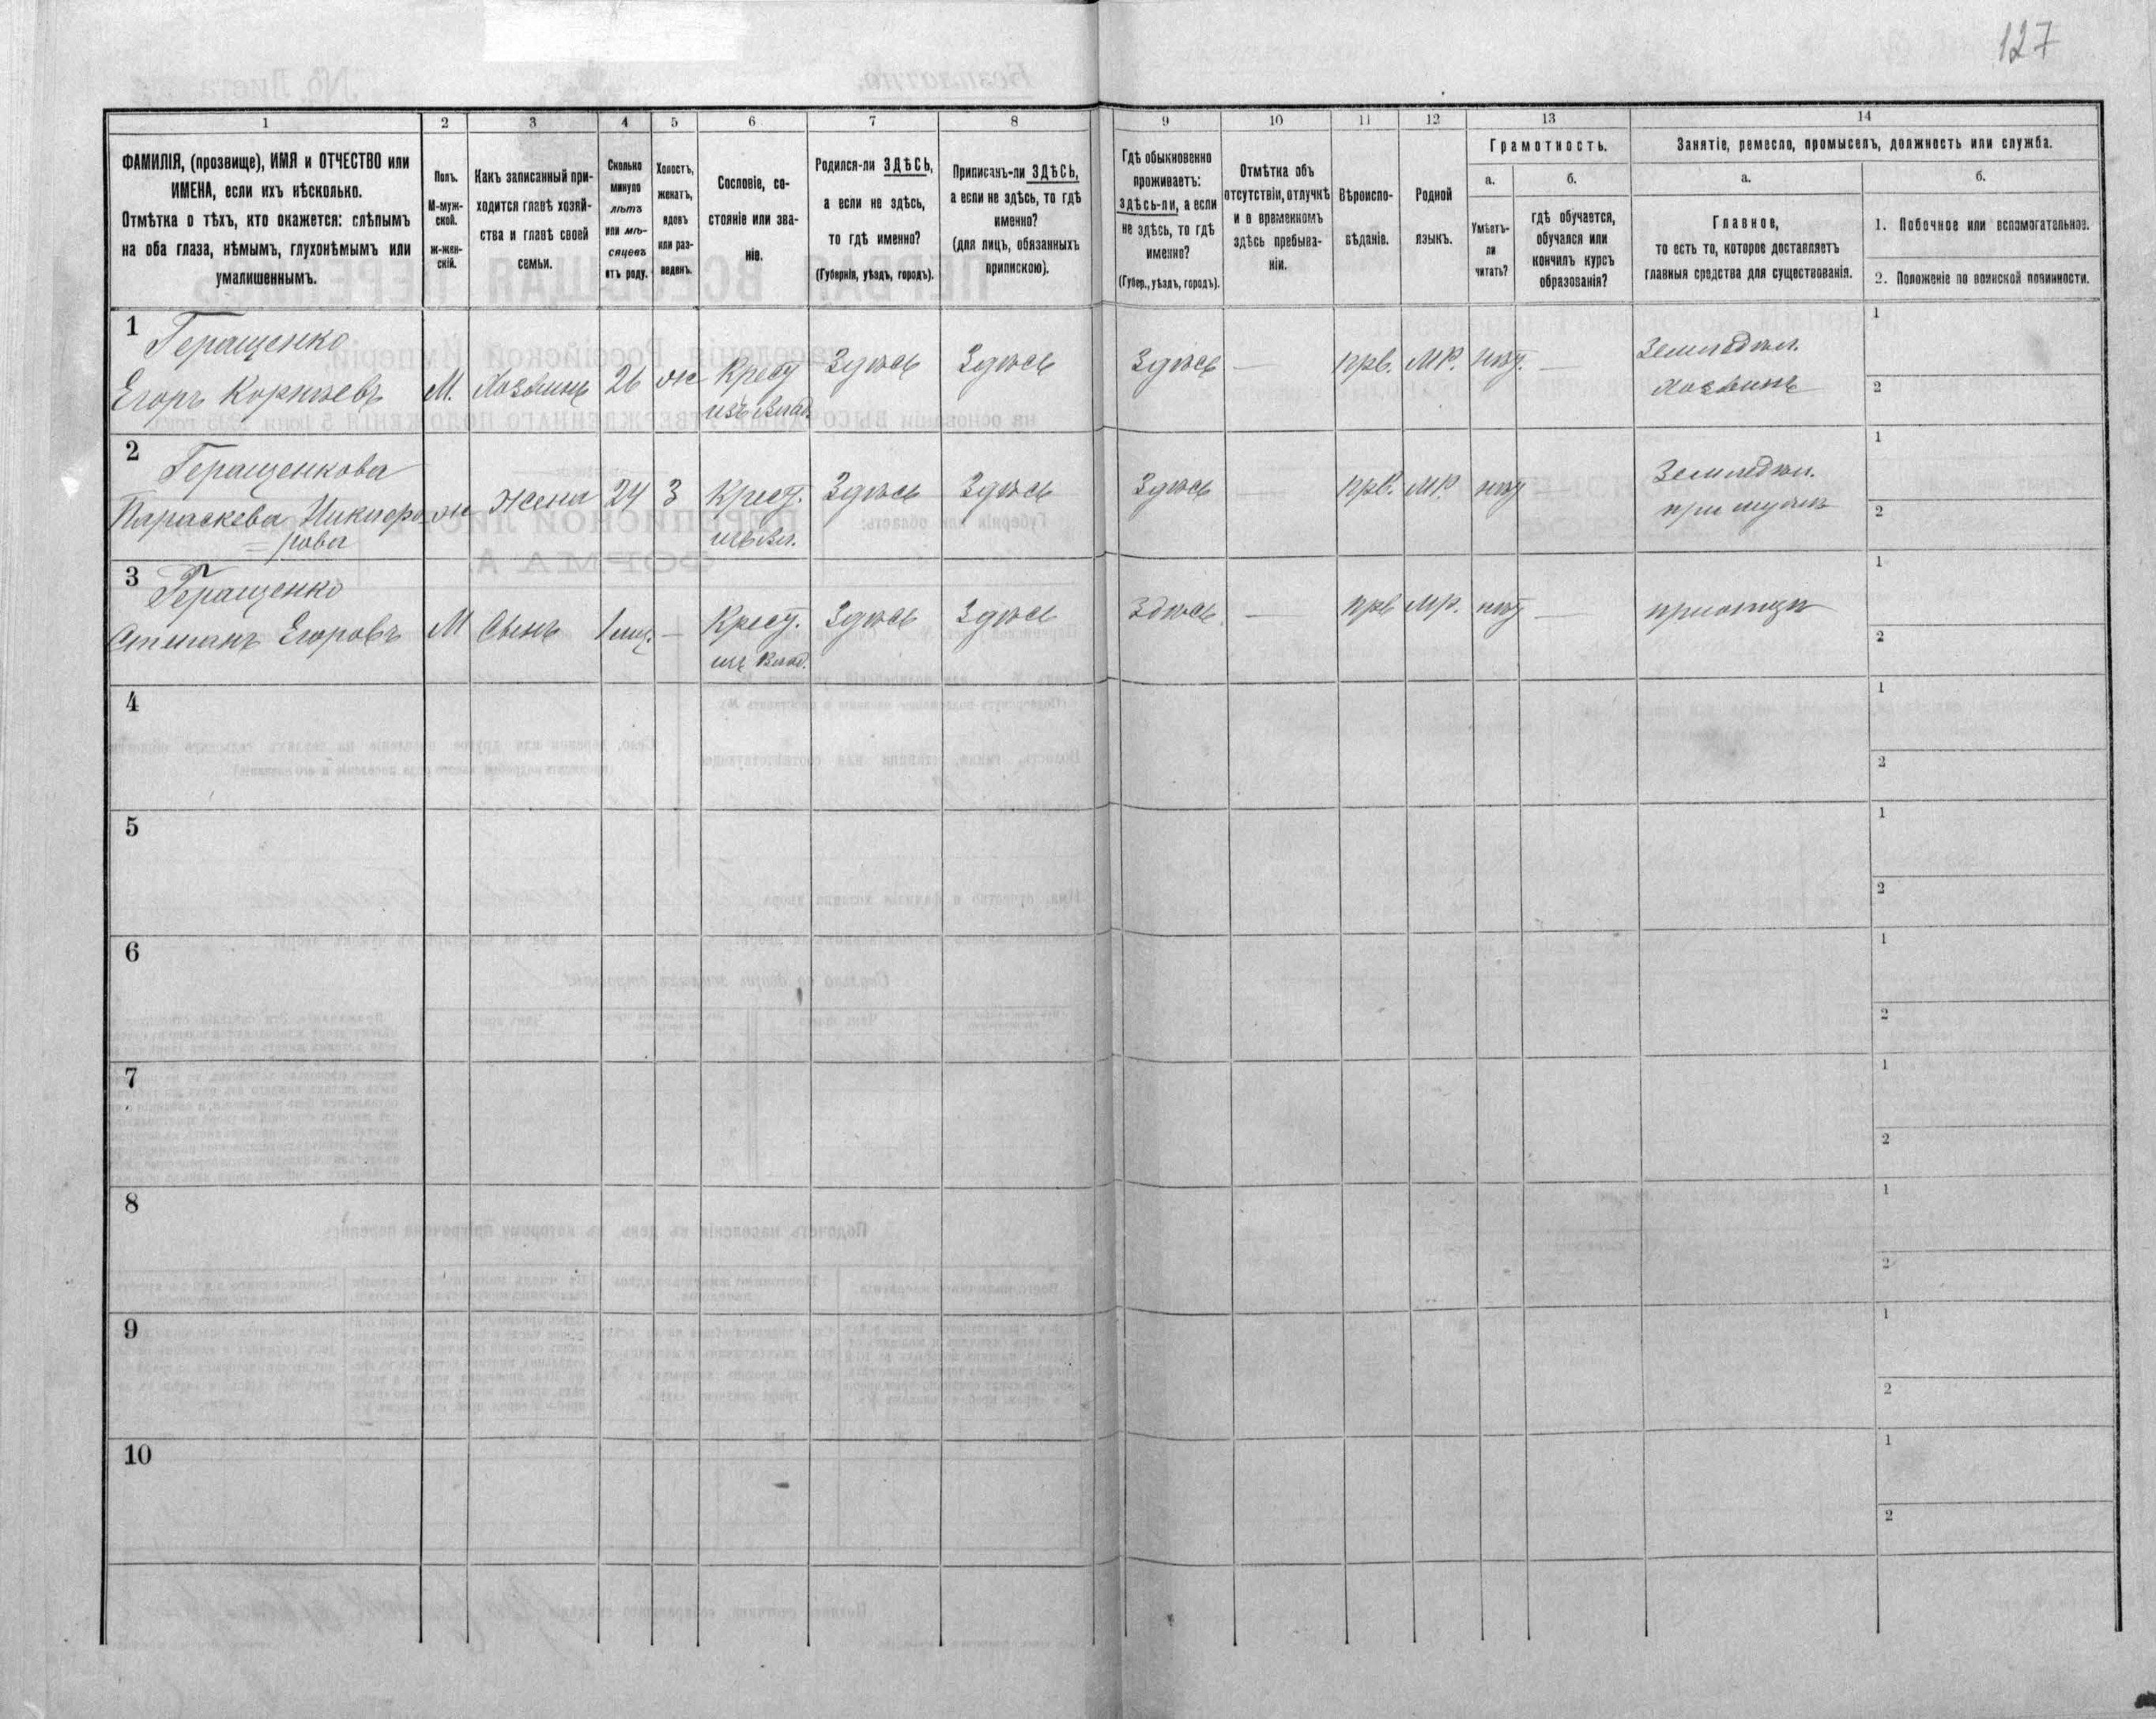 127
1
2
3
4
5
6
7
8
9
10
11
12
13
14
ФАМИЛІЯ, (прозвище), ИМЯ и ОТЧЕСТВО или
ИМЕНА, если ихъ нѣсколько.
Отмѣтка о тѣхъ, кто окажется: слѣпымъ
на оба глаза, нѣмымъ, глухонѣмымъ или
умалишеннымъ.
Полъ.
М-муж-
ской.
ж-жен-
скій.
Какъ записанный при-
ходится главѣ хозяй-
ства и главѣ своей
семьи.
Сколько
минуло
лѣтъ
или мѣ-
сяцевъ
отъ роду.
Холостъ,
женатъ,
вдовъ
или раз-
веденъ.
Сословіе, со-
стояніе или зва-
ніе.
Родился-ли ЗДѢСЬ,
а если не здѣсь,
то гдѣ именно?
(Губернія, уѣздъ, городъ).
Приписанъ-ли ЗДѢСЬ,
а если не здѣсь, то гдѣ
именно?
(для лицъ, обязанныхъ
припискою).
Гдѣ обыкновенно
проживаетъ:
здѣсь-ли, а если
не здѣсь, то гдѣ
именно?
(Губер., уѣздъ, городъ).
Отмѣтка объ
отсутствіи, отлучкѣ
и о временномъ
здѣсь пребыва-
ніи.
Вѣроиспо-
вѣданіе.
Родной
языкъ.
Грамотность.
а.
Умѣетъ-
ли
читать?
б.
гдѣ обучается,
обучался или
кончилъ курсъ
образованія?
Занятіе, ремесло, промыселъ, должность или служба.
а.
Главное,
то есть то, которое доставляетъ
главныя средства для существованія.
б.
1. Побочное или вспомогательное.
2. Положеніе по воинской повинности.
1 Геращенко
Егоръ Корнѣевъ М. Хозяинъ 26 ж Крест. Здѣсь Здѣсь Здѣсь — прв. мр. нѣт. — Земледѣл. 1
изъ Влад. хозяинъ 2
2 Геращенкова
Параскева Никифо- ж жена 24 3 Крест. Здѣсь Здѣсь Здѣсь — прв. мр нѣт — Земледѣл. 1
=рова изъ Вл. при мужѣ 2
3 Геращенко
Степанъ Егоровъ М Сынъ 1 мц. — Крест. Здѣсь Здѣсь Здѣсь — прв мр. нѣт — при отцѣ 1
из Влад. 2
4 1
2
5 1
2
6 1
2
7 1
2
8 1
2
9 1
2
10 1
2